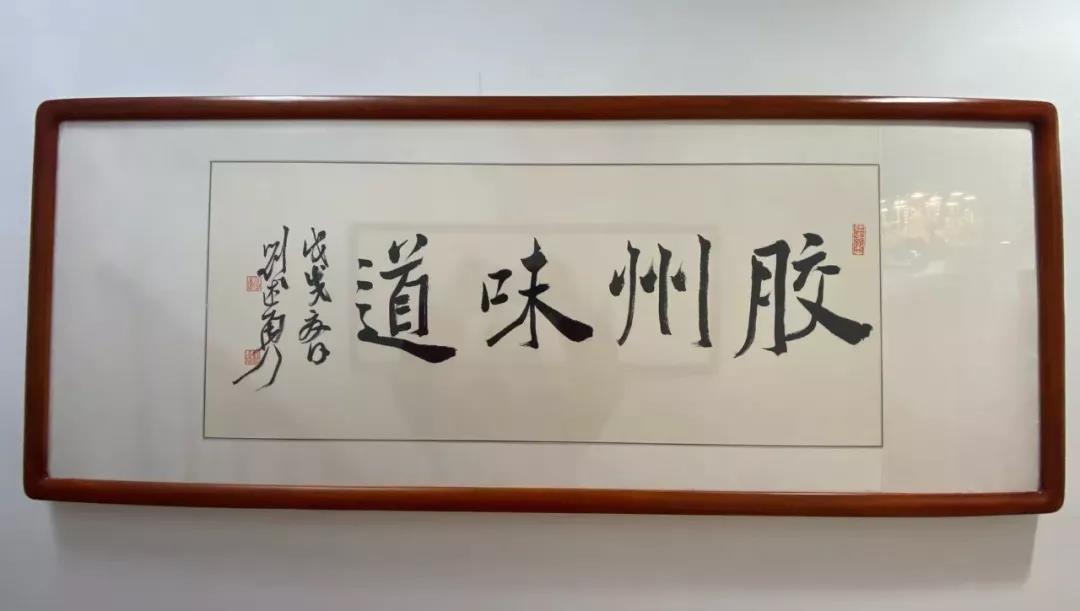 胶州味道
戊戌春日
刘